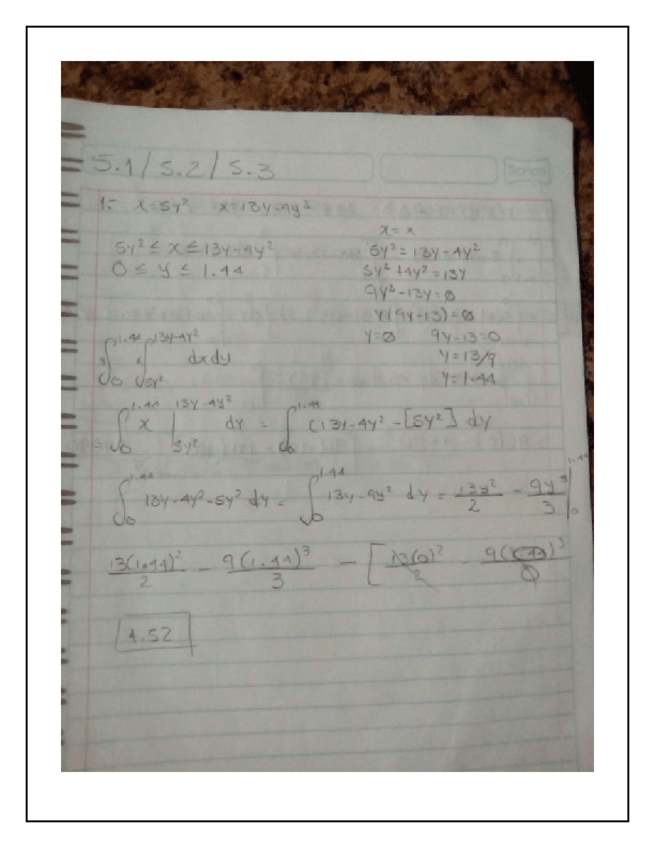 5.1/5.2/5.3
1.- x=5y² x=13y-4y²
5y² ≤ x ≤ 13y-4y²
0 ≤ y ≤ 1.44
x = x
5y² = 13y-4y²
5y²+4y²=13y
9y²-13y=0
y(9y-13)=0
y=0 9y-13=0
y=13/9
y=1.44
∫₀^1.44 ∫_5y²^13y-4y² dxdy
∫₀^1.44 x |_5y²^13y-4y² dy = ∫₀^1.44 (13y-4y²-[5y²] dy
∫₀^1.44 13y-4y²-5y² dy = ∫₀^1.44 13y-9y² dy = 13y²/2 - 9y³/3 |₀^1.44
13(1.44)²/2 - 9(1.44)³/3 - [13(0)²/2 - 9( )³/
4.52